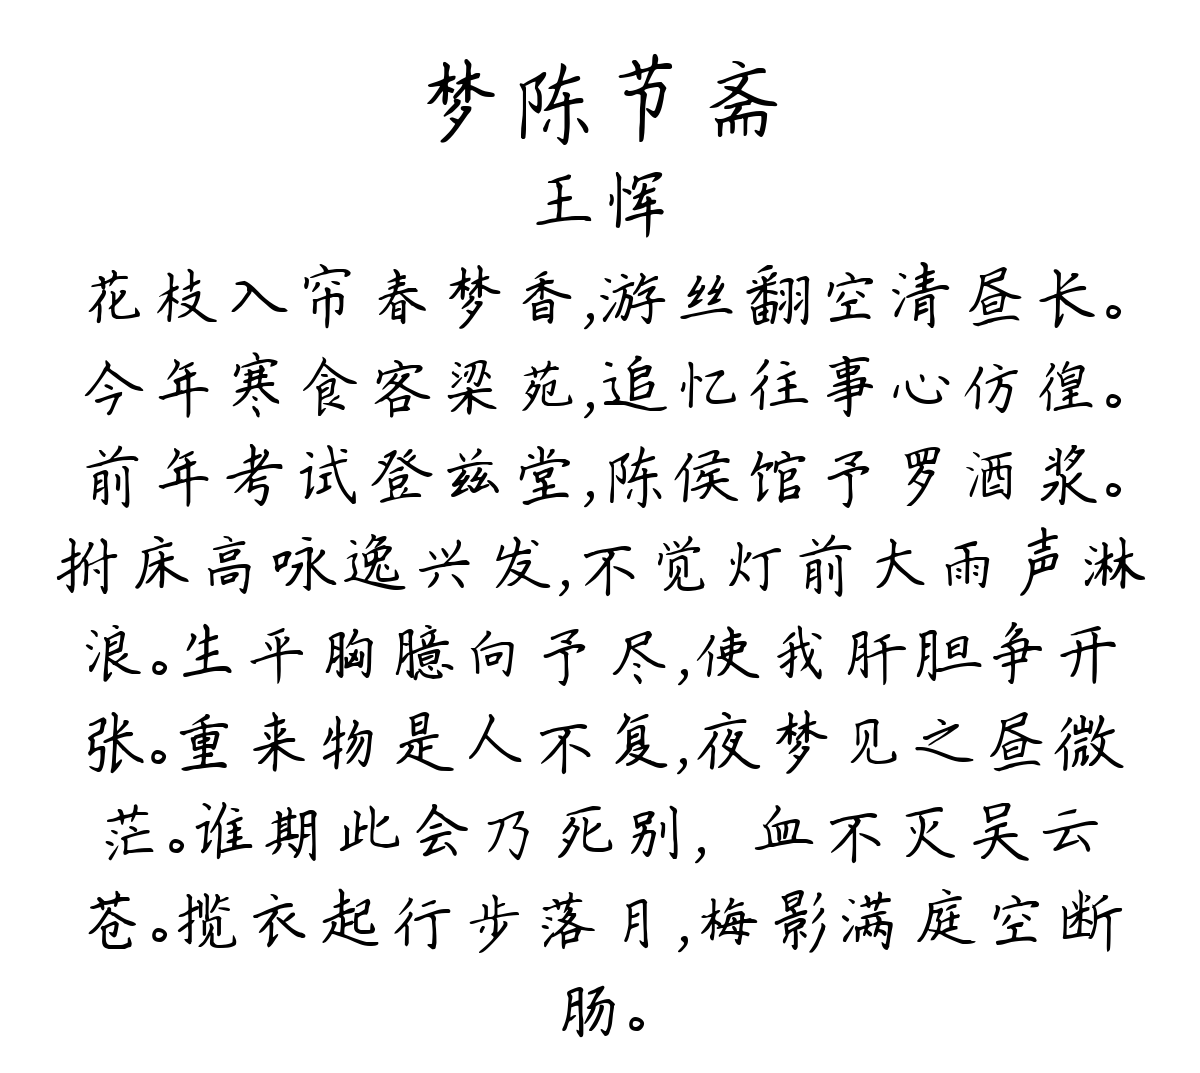 梦陈节斋
王恽
花枝入帘春梦香,游丝翻空清昼长。
今年寒食客梁苑,追忆往事心仿徨。
前年考试登兹堂,陈侯馆予罗酒浆。
拊床高咏逸兴发,不觉灯前大雨声淋
浪。生平胸臆向予尽,使我肝胆争开
张。重来物是人不复,夜梦见之昼微
茫。谁期此会乃死别，血不灭吴云
苍。揽衣起行步落月,梅影满庭空断
肠。